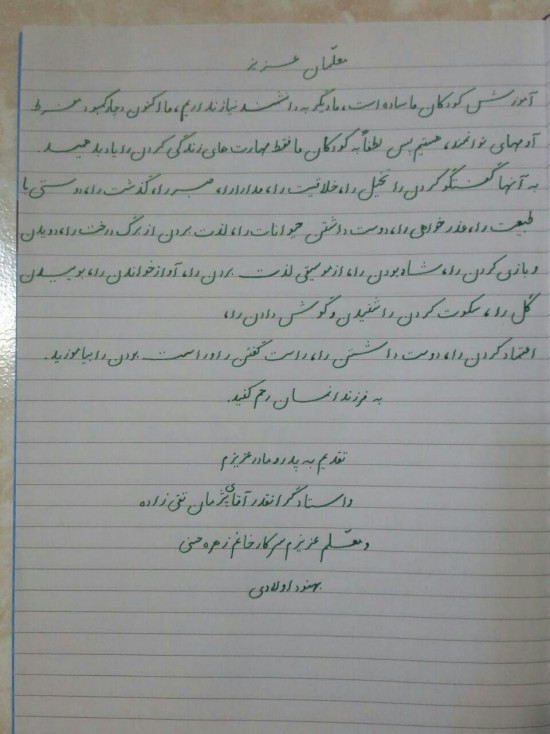 معلّمان عزیز
آموزش کودکان ما ساده است، ما دیگر به دانشمند نیاز نداریم، ما اکنون دچار کمبود مفرط
آدمهای توانمند، هستیم پس لطفاً به کودکان ما فقط مهارت های زندگی کردن را یاد بدهید.
به آنها گفتگو کردن را، تخیل را، خلاقیت را، مدارا را، صبر را، گذشت را، دوستی با
طبیعت را، عذرخواهی را، دوست داشتن حیوانات را، لذت بردن از برگ درخت را، دویدن
و بازی کردن را، شاد بودن را، از موسیقی لذت بردن را، آواز خواندن را، بوییدن
گل را، سکوت کردن را شنیدن و گوش دادن را،
اعتماد کردن را، دوست داشتن را، راست گفتن را و راست بودن را بیاموزید.
به فرزند انسان رحم کنید.
تقدیم به پدر و مادر عزیزم
و استاد گرانقدر آقای پژمان تقی زاده
و معلّم عزیزم سرکار خانم زهره حسنی
بهنود اولادی